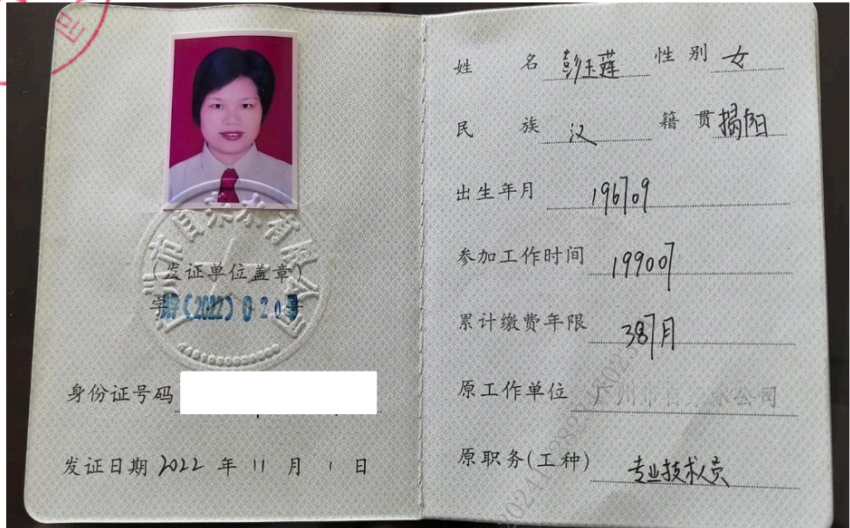 (发证单位盖章)
(2022) 020号
身份证号码
发证日期 2022 年 11 月 1 日
姓 名 彭玉莲 性别 女
民 族 汉 籍贯 揭阳
出生年月 196709
参加工作时间 199007
累计缴费年限 387月
原工作单位 广州市自来水公司
原职务(工种) 专业技术人员